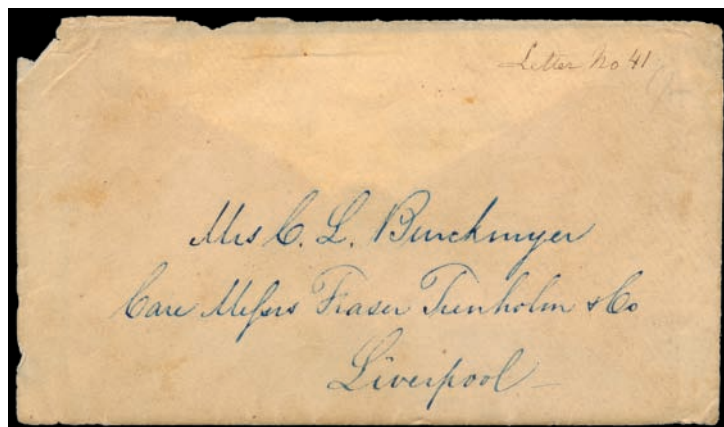 Letter No 41
Mrs C. L. Burckmyer
Care Messrs Fraser Trenholm & Co
Liverpool